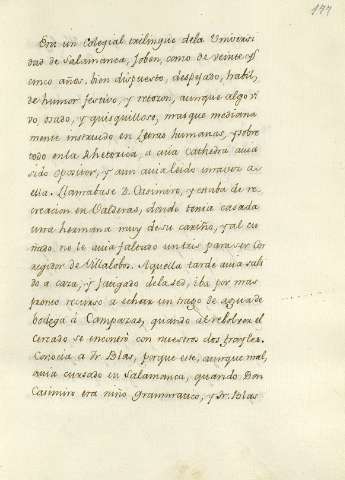 177
Era un Colegial trilingue dela Universi
dad de Salamanca, Joben, como de veinte y
cinco años, bien dispuesto, despejado, habil,
de humor festivo, y reton, aunque algo vi
vo, osado, y quisquilloso, mas que mediana
mente instruido en Letras humanas, y sobre
todo en la Rhetorica, a cuia Cathedra auia
sido opositor, y aun auia leido
ella. Llamabase D. Casimiro, y estaba de re
creacion en Valderas, donde tenia casada
una hermana muy de su cariño, y al cu
ñado no le auia faltado un tris para ser Co
rregidor de Villalobos. Aquella tarde auia sali
do a caza, y fatigado dela sed, iba por mas
prompto recurso a echar un trago de agua de
bodega à Campazas, quando al rebolver el
Cercado se encontrò con nuestros dos frayles.
Conocia a Fr. Blas, porque este, aunque mal,
auia cursado en Salamanca, quando Don
Casimiro era niño Grammatico, y Fr. Blas